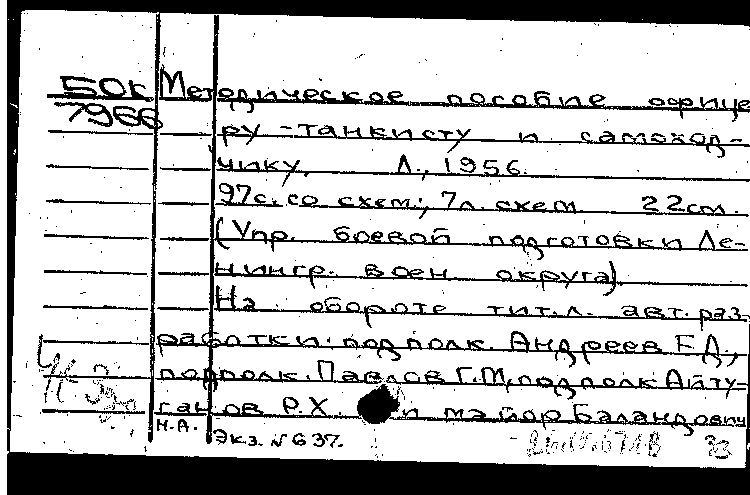 50к Методическое пособие офице
7966 ру-танкисту и самоход-
чику. Л., 1956.
97с. со схем; 7л. схем 22см.
(Упр. боевой подготовки Ле-
нингр. воен. округа).
На обороте тит. л. авт. раз
работки: подполк. Андреев Е.Д.,
подполк. Павлов Г.М, подполк Айту-
ганов Р.Х. и майор Баландович
Н.А.
Экз. №637.